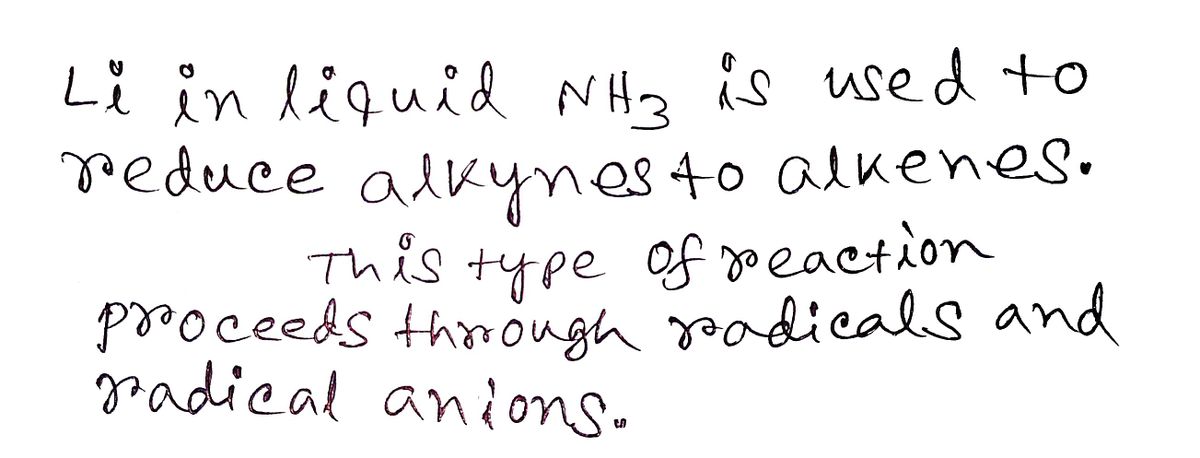 Li in liquid NH3 is used to
reduce alkynes to alkenes.
This type of reaction
proceeds through radicals and
radical anions.